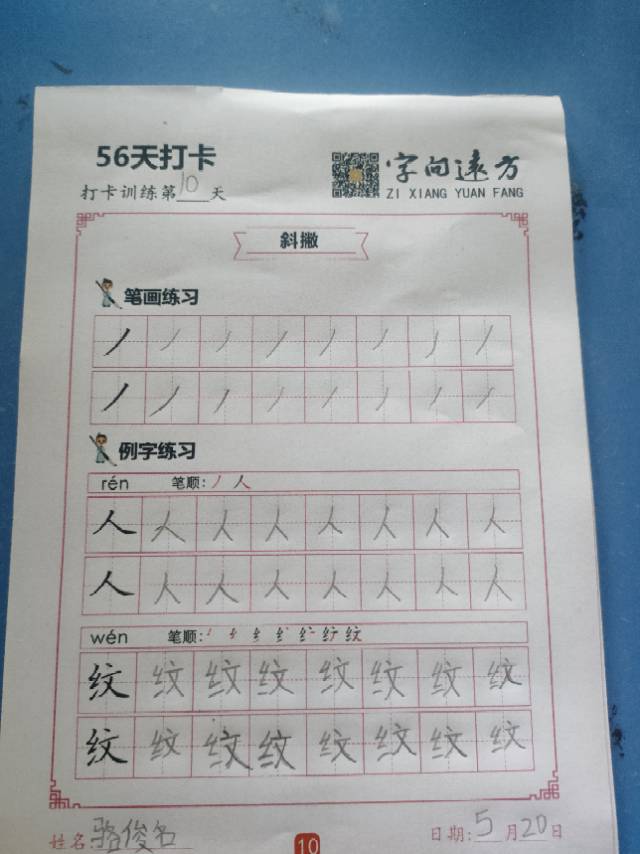 56天打卡
打卡训练第10天
字向远方
ZI XIANG YUAN FANG
斜撇
笔画练习
丿 丿 丿 丿 丿 丿 丿 丿
丿 丿 丿 丿 丿 丿 丿 丿
例字练习
rén 笔顺: 丿 人
人 人 人 人 人 人 人 人
人 人 人 人 人 人 人 人
wén 笔顺:
纹 纹 纹 纹 纹 纹 纹 纹
纹 纹 纹 纹 纹 纹 纹 纹
姓名: 骆俊名 10 日期: 5月20日